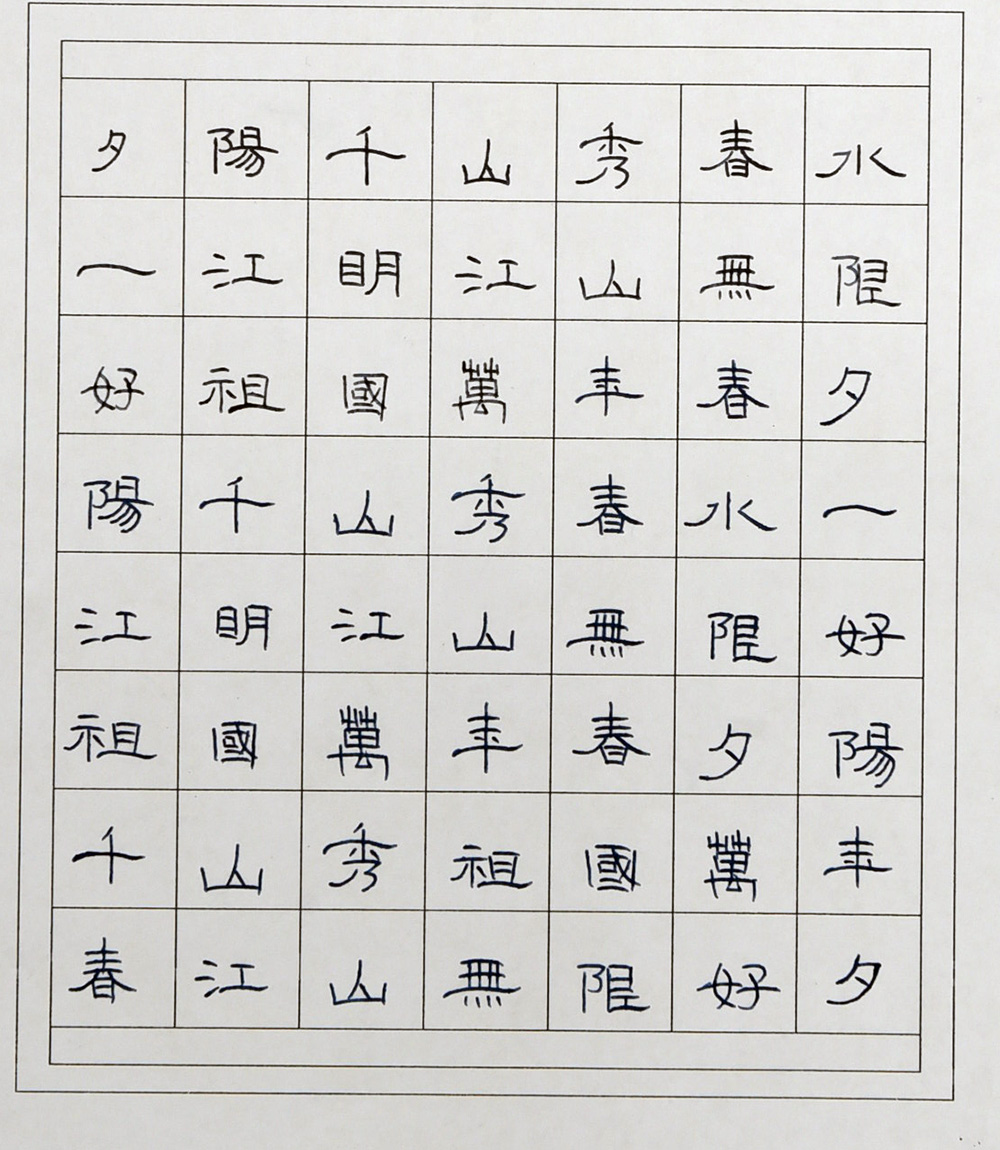 夕陽千山秀春水
一江明江山無限
好祖國萬年春夕
陽千山秀春水一
江明江山無限好
祖國萬年春夕陽
千山秀祖國萬年
春江山無限好夕